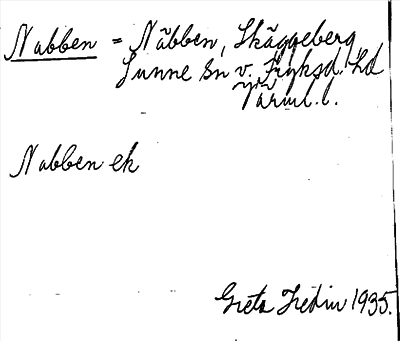 Nabben = Näbben, Skäggeberg
Sunne sn v. Fryksd. hd
Värml. l.
Nabben ek
Greta Hedin 1935.